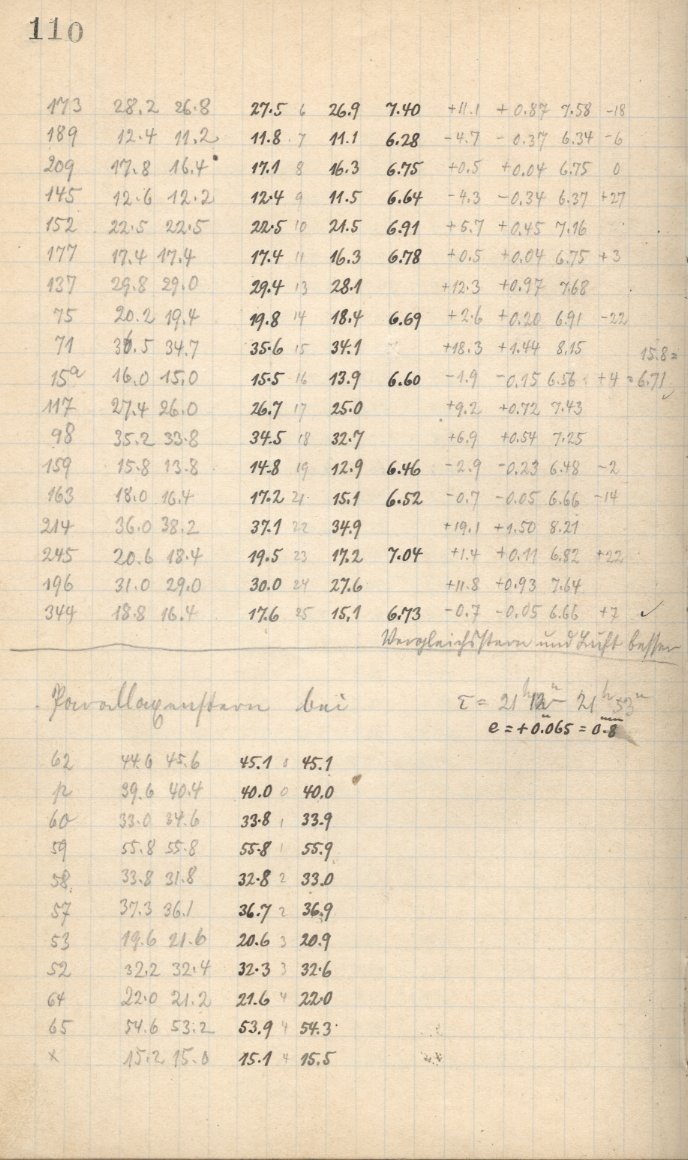 110
173 28.2 26.8 27.5 6 26.9 7.40 +11.1 +0.87 7.58 -18
189 12.4 11.2 11.8 7 11.1 6.28 -4.7 -0.37 6.34 -6
209 17.8 16.4 17.1 8 16.3 6.75 +0.5 +0.04 6.75 0
145 12.6 12.2 12.4 9 11.5 6.64 -4.3 -0.34 6.37 +27
152 22.5 22.5 22.5 10 21.5 6.91 +5.7 +0.45 7.16
177 17.4 17.4 17.4 11 16.3 6.78 +0.5 +0.04 6.75 +3
137 29.8 29.0 29.4 13 28.1 +12.3 +0.97 7.68
75 20.2 19.4 19.8 14 18.4 6.69 +2.6 +0.20 6.91 -22
71 36.5 34.7 35.6 15 34.1 +18.3 +1.44 8.15 15.8=
15a 16.0 15.0 15.5 16 13.9 6.60 -1.9 -0.15 6.56 +4 =6.71
117 27.4 26.0 26.7 17 25.0 +9.2 +0.72 7.43
98 35.2 33.8 34.5 18 32.7 +6.9 +0.54 7.25
159 15.8 13.8 14.8 19 12.9 6.46 -2.9 -0.23 6.48 -2
163 18.0 16.4 17.2 21 15.1 6.52 -0.7 -0.05 6.66 -14
214 36.0 38.2 37.1 22 34.9 +19.1 +1.50 8.21
245 20.6 18.4 19.5 23 17.2 7.04 +1.4 +0.11 6.82 +22
196 31.0 29.0 30.0 24 27.6 +11.8 +0.93 7.64
344 18.8 16.4 17.6 25 15.1 6.73 -0.7 -0.05 6.66 +7 ✓
Vergleichstern und Luft besser
Parallaxenstern bei τ = 21h 12m - 21h 53m
e = +0.065 = 0.8
62 44.6 45.6 45.1 0 45.1
p 39.6 40.4 40.0 0 40.0
60 33.0 34.6 33.8 1 33.9
59 55.8 55.8 55.8 1 55.9
58 33.8 31.8 32.8 2 33.0
57 37.3 36.1 36.7 2 36.9
53 19.6 21.6 20.6 3 20.9
52 32.2 32.4 32.3 3 32.6
64 22.0 21.2 21.6 4 22.0
65 54.6 53.2 53.9 4 54.3
x 15.2 15.0 15.1 4 15.5